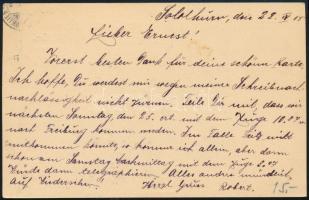 Solothurn, den 23. IV 05
Lieber Ernest!
Vorerst besten Dank für deine schöne Karte.
Ich hoffe, Du werdest mir wegen meiner Schreibnach-
nachlässigkeit nicht zürnen. Teile Dir mit, dass wir
nächsten Sonntag, den 25. crt. mit dem Zuge 10.07
nach Freiburg kommen werden. Im Falle Fritz nicht
mitkommen könnte, so komme ich allein, aber dann
schon am Samstag Nachmittag mit dem Zuge 3.07
Würde dann telegraphieren. Alles andere mündlich.
Auf Wiedersehn! Herzl. Gruss Robert.
15.-